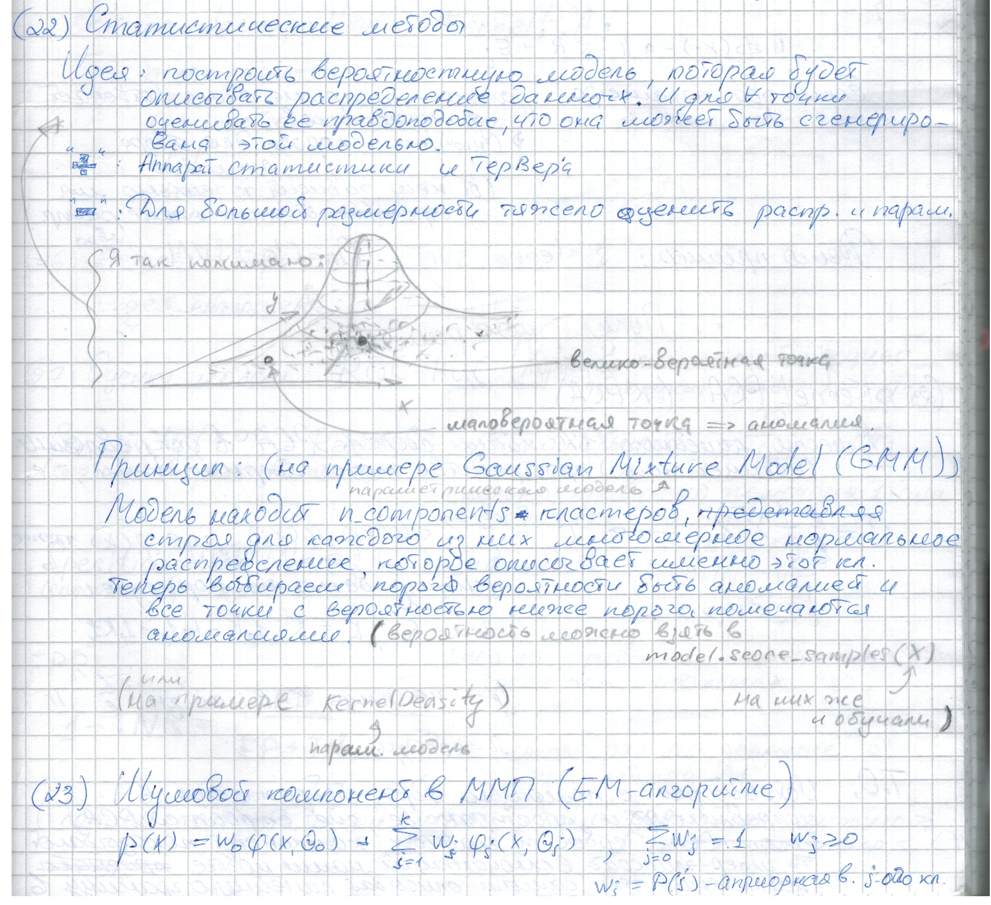 (22) Статистические методы
Идея: построить вероятностную модель, которая будет
описывать распределение данных. И для ∀ точки
оценивать её правдоподобие, что она может быть сгенериро-
вана этой моделью.
"+": Аппарат статистики и ТерВер'а
"-": Для большой размерности тяжело оценить распр. и парам.
Я так понимаю:
y
велико-вероятная точка
x
маловероятная точка => аномалия.
Принцип: (на примере Gaussian Mixture Model (GMM))
параметрическая модель
Модель находит n_components кластеров, представляя
строя для каждого из них многомерное нормальное
распределение, которое описывает именно этот кл.
Теперь выбираем порог вероятности быть аномалией и
все точки с вероятностью ниже порога помечаются
аномалиями. (вероятность можно взять в
model.score_samples(X)
или
(на примере KernelDensity)
на них же
и обучали)
парам. модель
(23) Шумовой компонент в ММП (EM-алгоритме)
p(x) = w₀ φ(x, Θ₀) + Σ_{j=1}^{k} w_j φ_j(x, Θ_j), Σ_{j=0} w_j = 1 w_j ≥ 0
w_j = P(j) - априорная в. j-ого кл.